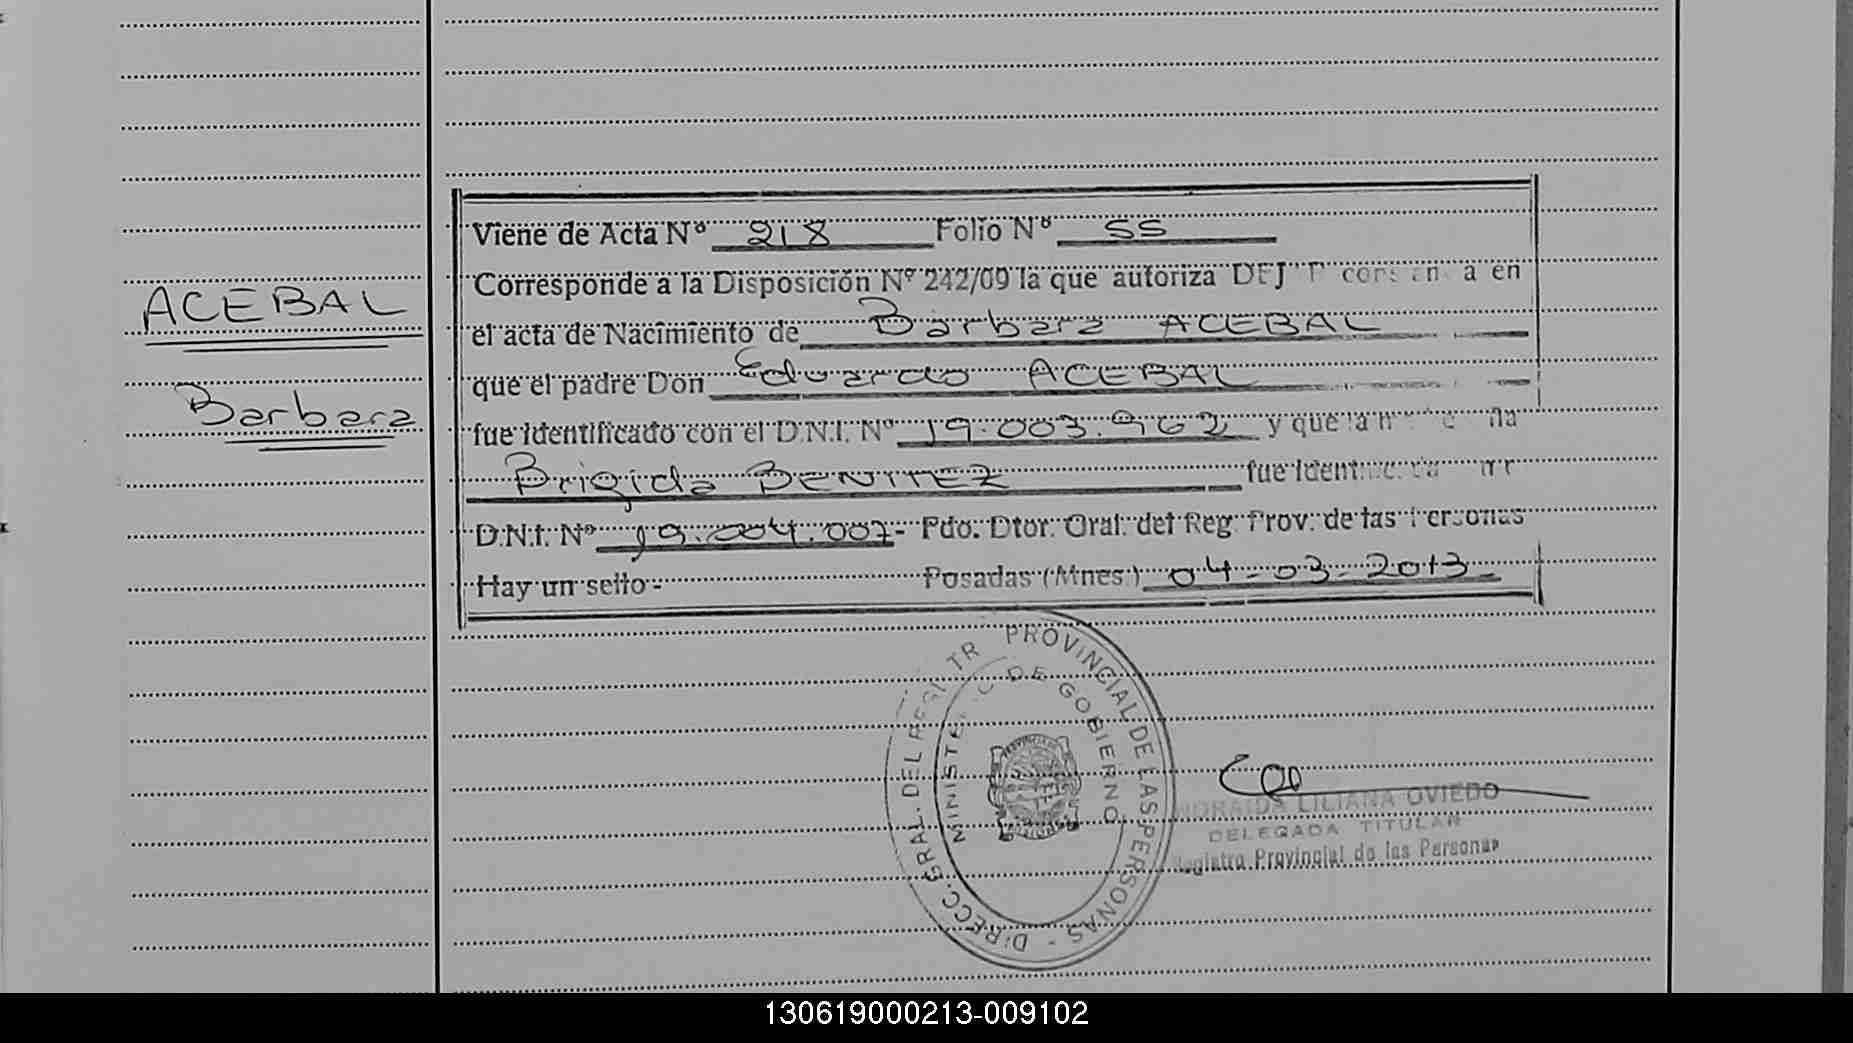 Viene de Acta Nº 218 Folio Nº 55
Corresponde a la Disposición Nº 242/09 la que autoriza DEJ en
ACEBAL
el acta de Nacimiento de Barbara ACEBAL
que el padre Don Eduardo ACEBAL
Barbara
fue identificado con el D.N.I. Nº 19.003.962 y que la
Brigida BENITEZ fue
D.N.I. Nº 19.004.007- Fdo. Dtor. Gral. del Reg. Prov. de las Personas
Hay un sello - Posadas (Mnes.) 04-03-2013-
DIRECC. GRAL. DEL REGISTR PROVINCIAL DE LAS PERSONAS -
MINISTERIO DE GOBIERNO
LILIANA OVIEDO
DELEGADA TITULAR
Registro Provincial de las Personas
130619000213-009102